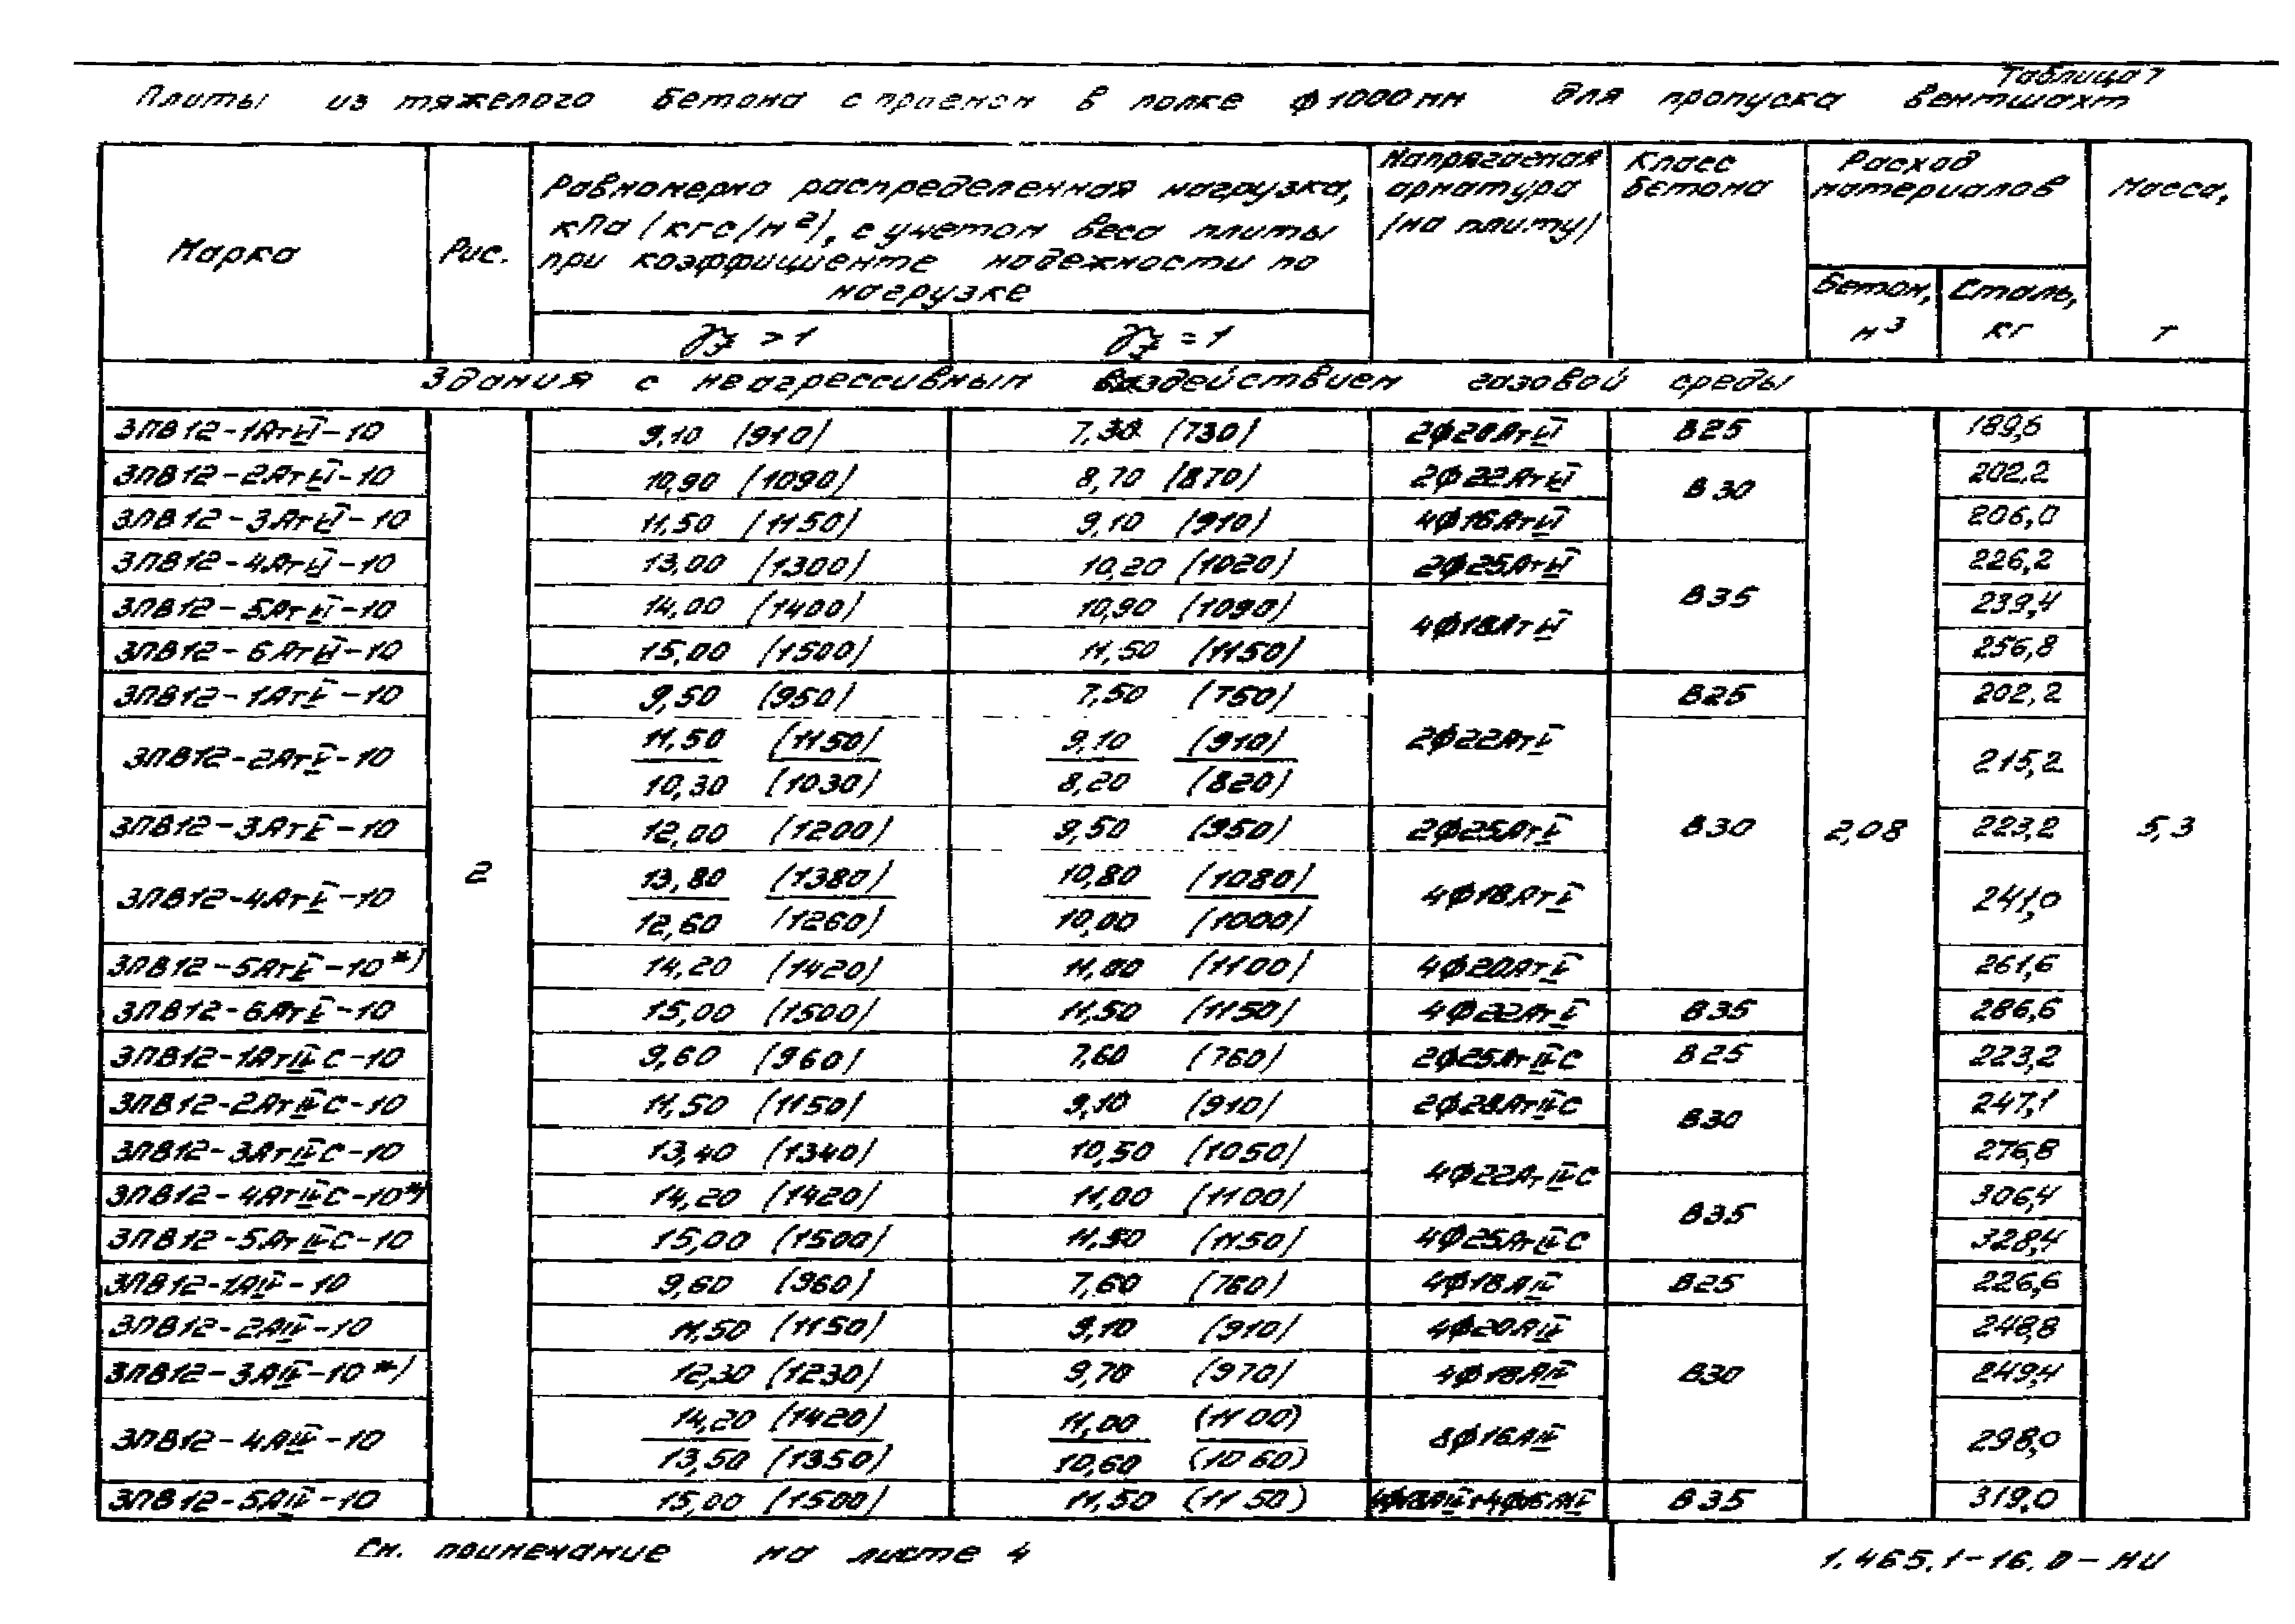 Таблица 7
Плиты из тяжелого бетона с проемом в полке ф1000мм для пропуска вентшахт
Марка
Рис.
Равномерно распределенная нагрузка,
кПа (кгс/м²), с учетом веса плиты
при коэффициенте надежности по
нагрузке
γf > 1
γf = 1
Напрягаемая
арматура
(на плиту)
Класс
бетона
Расход
материалов
Бетон,
м³
Сталь,
кг
Масса,
т
Здания с неагрессивным воздействием газовой среды
3ПВ12-1АтVI-10 9,10 (910) 7,30 (730) 2ф20АтVI В25 189,6
3ПВ12-2АтVI-10 10,90 (1090) 8,70 (870) 2ф22АтVI В30 202,2
3ПВ12-3АтVI-10 11,50 (1150) 9,10 (910) 4ф16АтVI 206,0
3ПВ12-4АтVI-10 13,00 (1300) 10,20 (1020) 2ф25АтVI В35 226,2
3ПВ12-5АтVI-10 14,00 (1400) 10,90 (1090) 4ф18АтVI 239,4
3ПВ12-6АтVI-10 15,00 (1500) 11,50 (1150) 256,8
3ПВ12-1АтV-10 9,50 (950) 7,50 (750) 2ф22АтV В25 202,2
3ПВ12-2АтV-10 11,50 (1150) 9,10 (910) 215,2
10,30 (1030) 8,20 (820)
3ПВ12-3АтV-10 12,00 (1200) 9,50 (950) 2ф25АтV В30 2,08 223,2 5,3
2
3ПВ12-4АтV-10 13,80 (1380) 10,80 (1080) 4ф18АтV 241,0
12,60 (1260) 10,00 (1000)
3ПВ12-5АтV-10*) 14,20 (1420) 11,00 (1100) 4ф20АтV 261,6
3ПВ12-6АтV-10 15,00 (1500) 11,50 (1150) 4ф22АтV В35 286,6
3ПВ12-1АтIVС-10 9,60 (960) 7,60 (760) 2ф25АтIVС В25 223,2
3ПВ12-2АтIVС-10 11,50 (1150) 9,10 (910) 2ф28АтIVС В30 247,1
3ПВ12-3АтIVС-10 13,40 (1340) 10,50 (1050) 4ф22АтIVС 276,8
3ПВ12-4АтIVС-10*) 14,20 (1420) 11,00 (1100) В35 306,4
3ПВ12-5АтIVС-10 15,00 (1500) 11,50 (1150) 4ф25АтIVС 328,4
3ПВ12-1АIV-10 9,60 (960) 7,60 (760) 4ф18АIV В25 226,6
3ПВ12-2АIV-10 11,50 (1150) 9,10 (910) 4ф20АIV В30 248,8
3ПВ12-3АIV-10*) 12,30 (1230) 9,70 (970) 4ф18АIV 249,4
3ПВ12-4АIV-10 14,20 (1420) 11,00 (1100) 8ф16АIV 298,0
13,50 (1350) 10,60 (1060)
3ПВ12-5АIV-10 15,00 (1500) 11,50 (1150) В35 319,0
См. примечание на листе 4
1.465.1-16.0-НИ